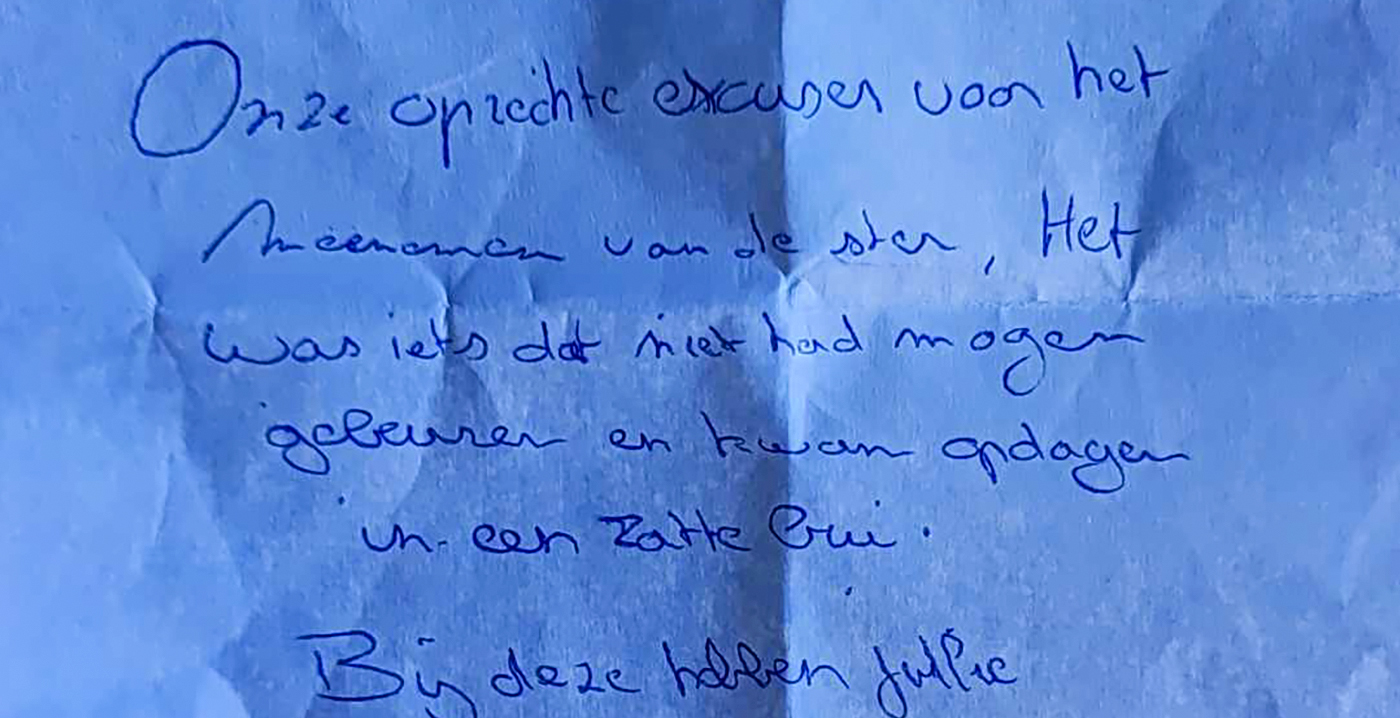 Onze oprechte excuses voor het
Meenemen van de ster, Het
was iets dat niet had mogen
gebeuren en kwam opdagen
in een zatte bui.
Bij deze hebben jullie